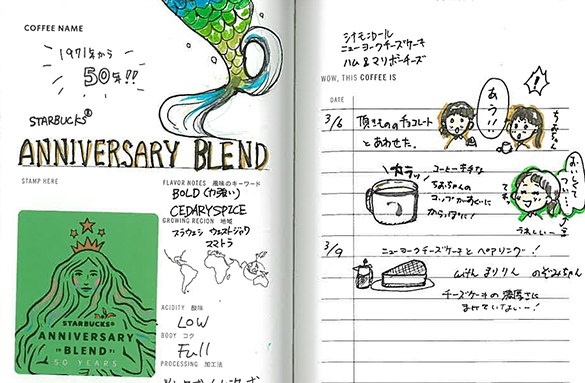 COFFEE NAME
1971年から
50年!!
STARBUCKS®
ANNIVERSARY BLEND
STAMP HERE
FLAVOR NOTES 風味のキーワード
BOLD (力強い)
CEDARY SPICE
GROWING REGION 地域
スラウェシ ウェストジャワ
スマトラ
ACIDITY 酸味
LOW
BODY コク
Full
PROCESSING 加工法
STARBUCKS®
ANNIVERSARY
BLEND
50 YEARS
シナモンロール
ニューヨークチーズケーキ
ハム&マリボーチーズ
WOW, THIS COFFEE IS
DATE
3/6 頂きもののチョコレート
とあわせた。
あう!!
!
カラッ
コーヒー好きな
ちおちゃんの
コップがあっという間に
うれしいー
3/9 ニューヨークチーズケーキとペアリング!
with まりりん のぞみちゃん
チーズケーキの濃厚さに
まけていないー!